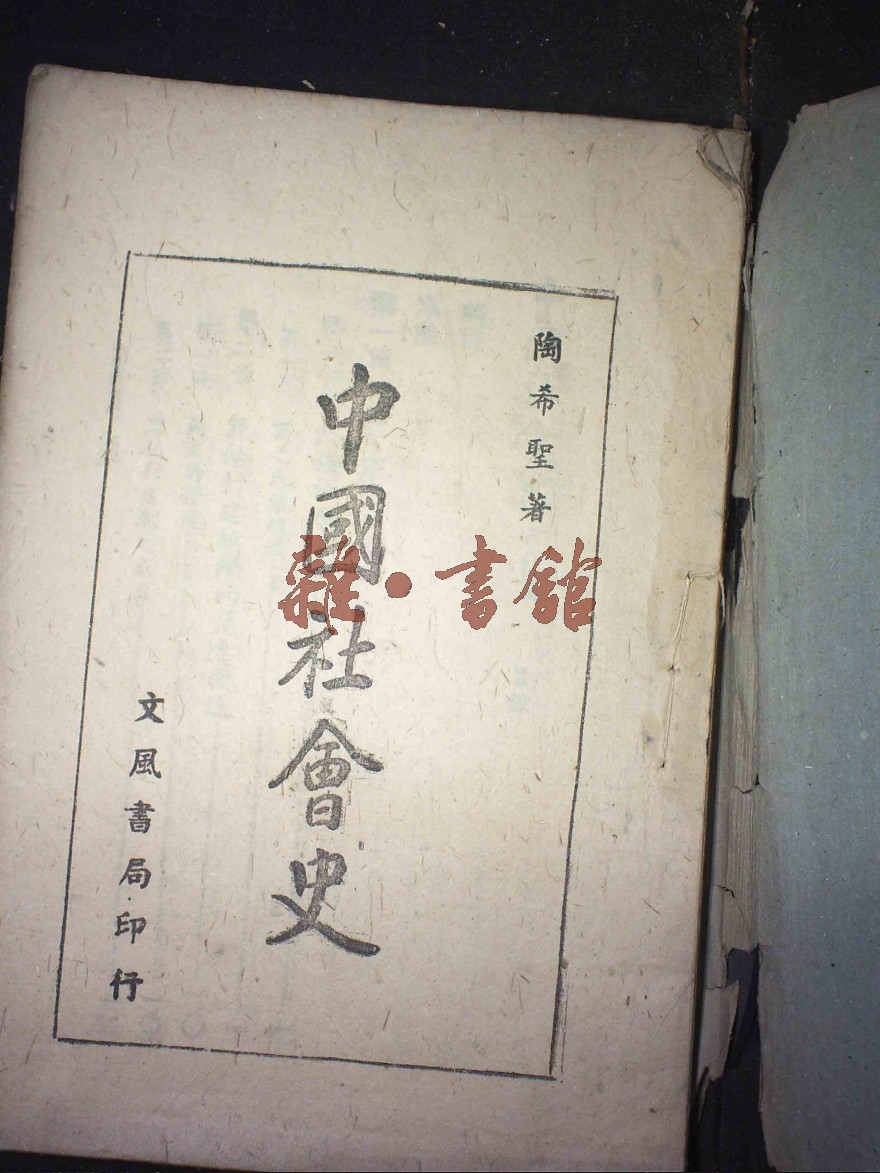 陶希聖著
中國社會史
文風書局印行
雜·書館